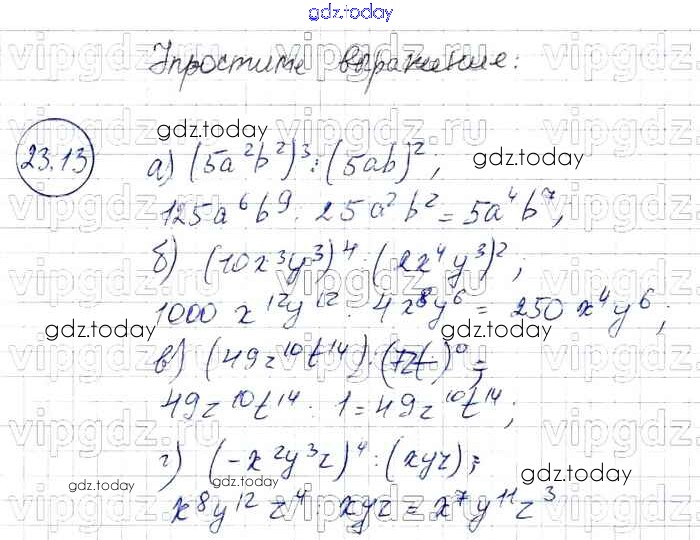 gdz.today
Упростите выражение:
23.13
gdz.today
а) (5a²b²)³ : (5ab)²,
gdz.today
125a⁶b⁹ : 25a²b² = 5a⁴b⁷,
б) (10x³y³)⁴ : (2x⁴y³)²,
1000 x¹²y¹² : 4x⁸y⁶ = 250 x⁴y⁶;
gdz.today
gdz.today
в) (49z¹⁰t¹⁴) : (7zt)⁰ =
49z¹⁰t¹⁴ : 1 = 49z¹⁰t¹⁴;
gdz.today
г) (-x²y³z)⁴ : (xyz);
gdz.today
gdz.today
x⁸y¹² z⁴ : xyz = x⁷y¹¹z³